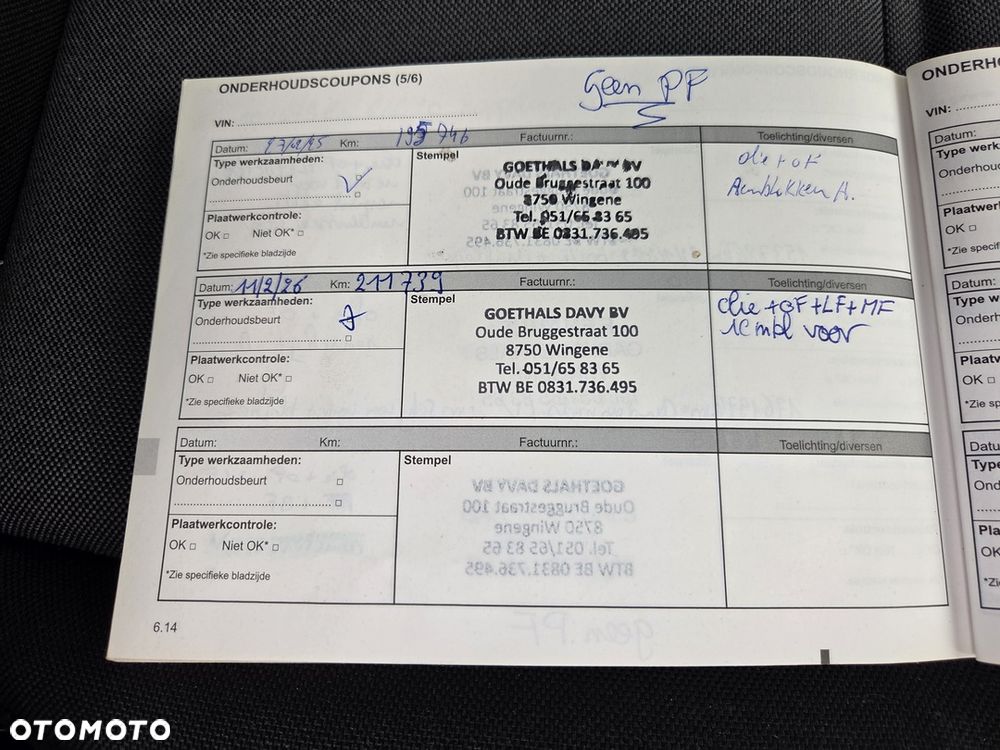 ONDERHOUDSCOUPONS (5/6)
Geen PF
VIN:
Datum: Km: 195 746 Factuurnr.: Toelichting/diversen
Type werkzaamheden:
Onderhoudsbeurt
Stempel
GOETHALS DAVY BV
Oude Bruggestraat 100
8750 Wingene
Tel. 051/65 83 65
BTW BE 0831.736.495
olie + OF
Plaatwerkcontrole:
OK Niet OK*
*Zie specifieke bladzijde
Datum: 11/2/26 Km: 211739 Factuurnr.: Toelichting/diversen
Type werkzaamheden:
Onderhoudsbeurt
Stempel
GOETHALS DAVY BV
Oude Bruggestraat 100
8750 Wingene
Tel. 051/65 83 65
BTW BE 0831.736.495
olie + OF + LF + MF
voor
Plaatwerkcontrole:
OK Niet OK*
*Zie specifieke bladzijde
Datum: Km: Factuurnr.: Toelichting/diversen
Type werkzaamheden:
Onderhoudsbeurt
Stempel
Plaatwerkcontrole:
OK Niet OK*
*Zie specifieke bladzijde
6.14
ONDERH
VIN:
Datum:
Type werkz
Onderhoud
Plaatwerk
OK
*Zie specifi
Datum:
Type w
Onderh
Plaatw
OK
*Zie sp
Datu
Type
Ond
Pla
OK
*Zi
OTOMOTO